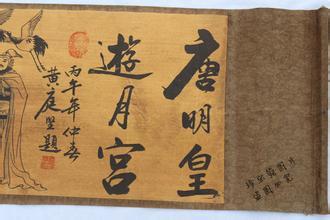 唐明皇
遊月宮
丙午年仲春
黄庭堅題